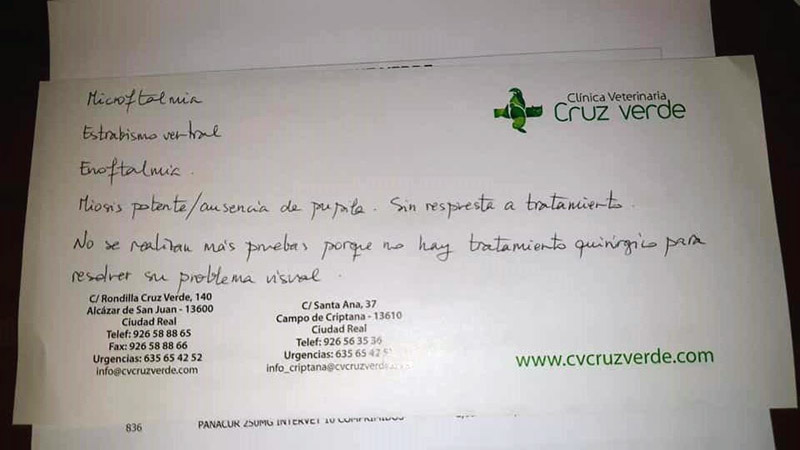 Microftalmia
Clínica Veterinaria
Cruz verde
Estrabismo ventral
Enoftalmia.
Miosis potente/ausencia de pupila. Sin respuesta a tratamiento.
No se realizan más pruebas porque no hay tratamiento quirúrgico para
resolver su problema visual.
C/ Rondilla Cruz Verde, 140
Alcázar de San Juan - 13600
Ciudad Real
Telef: 926 58 88 65
Fax: 926 58 88 66
Urgencias: 635 65 42 52
info@cvcruzverde.com
C/ Santa Ana, 37
Campo de Criptana - 13610
Ciudad Real
Telef: 926 56 35 36
Urgencias: 635 65 42 5
info_criptana@cvcruzverde
www.cvcruzverde.com
836 PANACUR 250MG INTERVET 10 COMPRIMIDOS